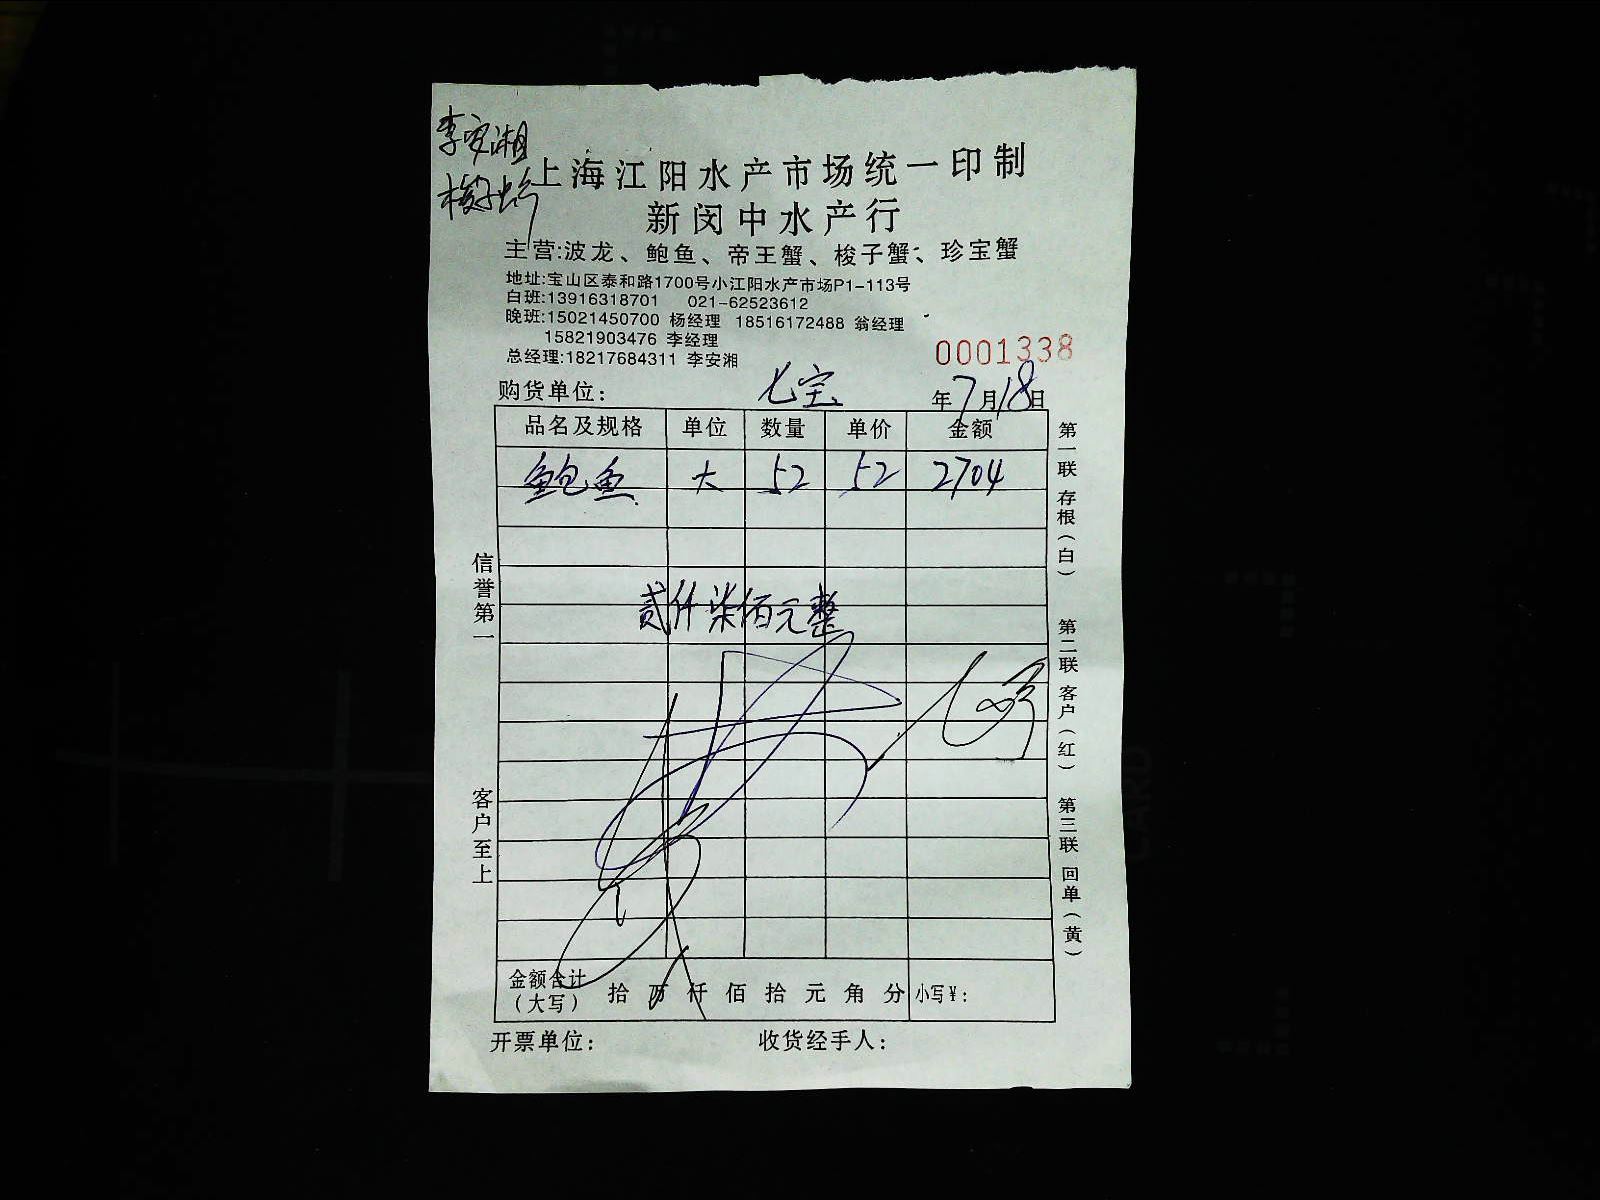 李安湘
梭子蟹
上海江阳水产市场统一印制
新闵中水产行
主营:波龙、鲍鱼、帝王蟹、梭子蟹、珍宝蟹
地址:宝山区泰和路1700号小江阳水产市场P1-113号
白班:13916318701 021-62523612
晚班:15021450700 杨经理 18516172488 翁经理
15821903476 李经理
总经理:18217684311 李安湘
0001338
购货单位: 七宝 年7月18日
品名及规格 单位 数量 单价 金额
鲍鱼 大 52 52 2704
贰仟柒佰元整
信誉第一
客户至上
第一联 存根(白)
第二联 客户(红)
第三联 回单(黄)
金额合计(大写) 拾 万 仟 佰 拾 元 角 分 小写¥:
开票单位: 收货经手人: